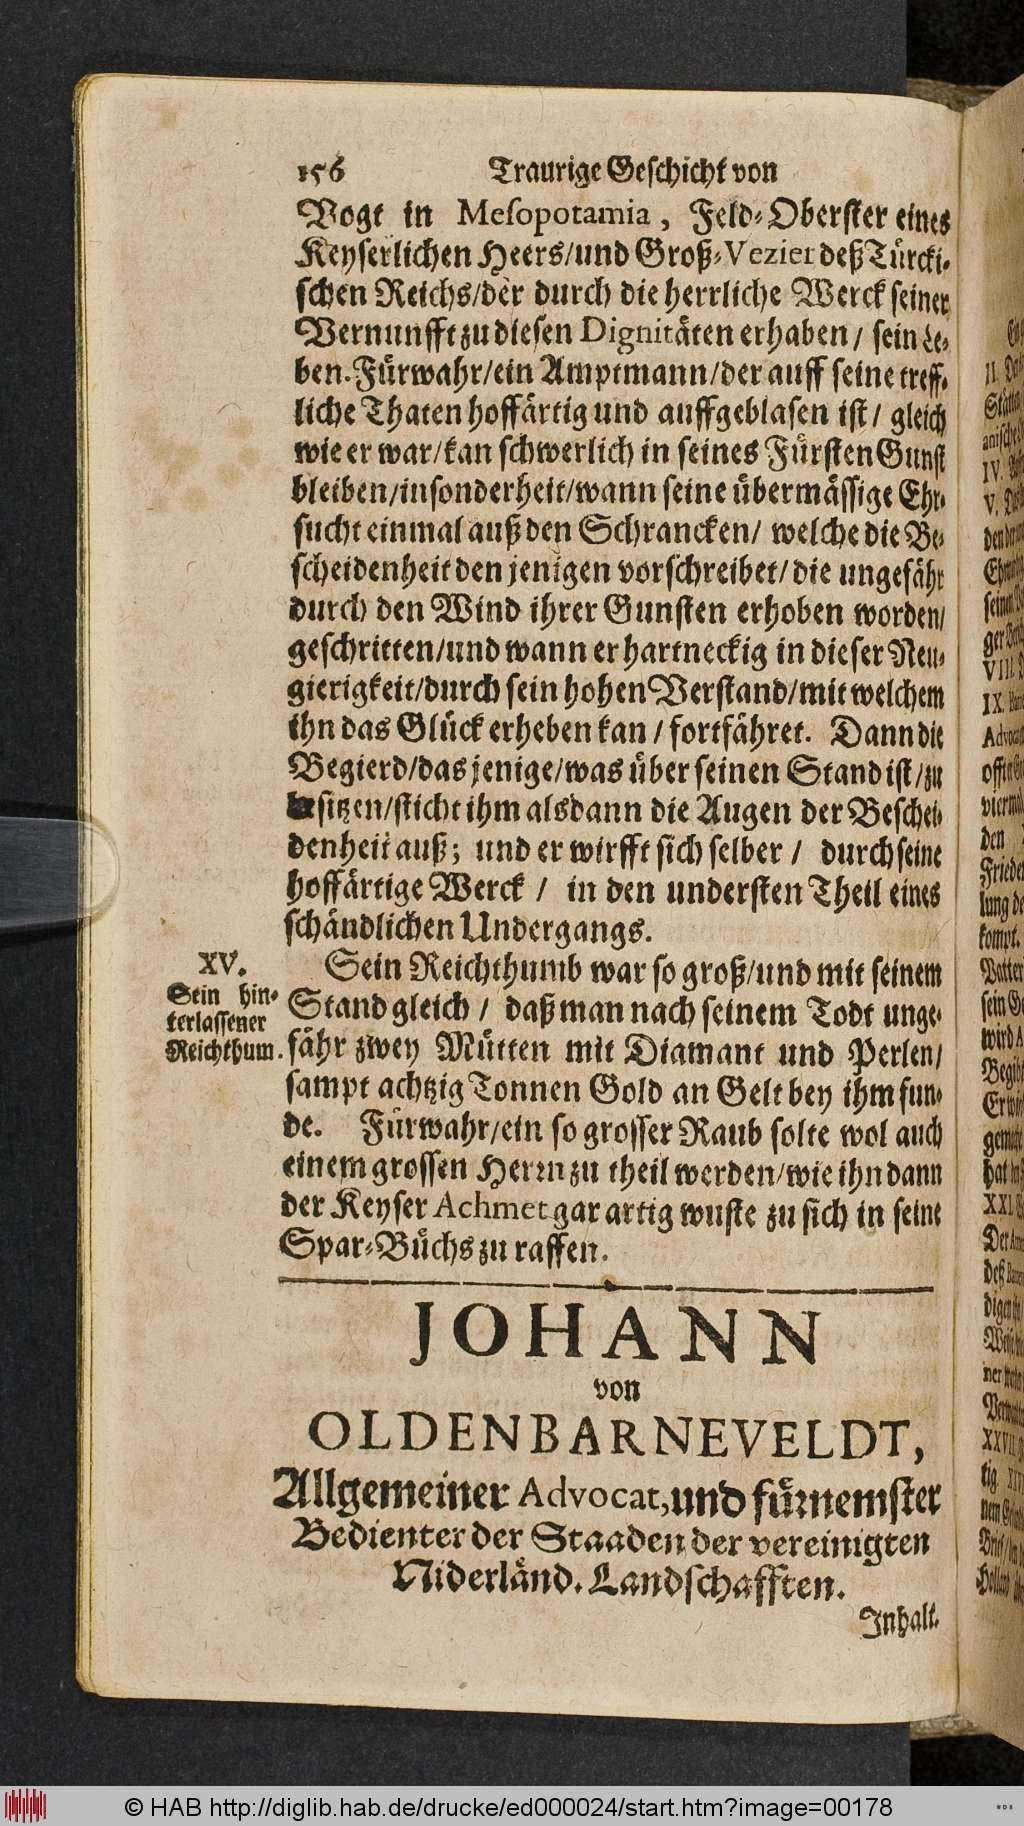 156 Traurige Geschicht von
Vogt in Mesopotamia, Feld-Oberster eines
Keyserlichen Heers/und Groß-Vezier deß Türcki-
schen Reichs/der durch die herrliche Werck seiner
Vernunfft zu diesen Dignitäten erhaben/ sein Le-
ben. Fürwahr/ein Amptmann/der auff seine treff-
liche Thaten hoffärtig und auffgeblasen ist/ gleich
wie er war/kan schwerlich in seines Fürsten Gunst
bleiben/insonderheit/wann seine übermässige Ehr-
sucht einmal auß den Schrancken/ welche die Be-
scheidenheit den jenigen vorschreibet/die ungefähr
durch den Wind ihrer Gunsten erhoben worden/
geschritten/und wann er hartneckig in dieser Neu-
gierigkeit/durch sein hohen Verstand/mit welchem
ihn das Glück erheben kan/ fortfähret. Dann die
Begierd/das jenige/was über seinen Stand ist/zu
besitzen/sticht ihm alsdann die Augen der Beschei-
denheit auß; und er wirfft sich selber/ durch seine
hoffärtige Werck/ in den understen Theil eines
schändlichen Undergangs.
XV.
Sein hin-
terlassener
Reichthum.
Sein Reichthumb war so groß/und mit seinem
Stand gleich/ daß man nach seinem Todt unge-
fähr zwey Mütten mit Diamant und Perlen/
sampt achtzig Tonnen Gold an Gelt bey ihm fun-
de. Fürwahr/ein so grosser Raub solte wol auch
einem grossen Herrn zu theil werden/wie ihn dann
der Keyser Achmet gar artig wuste zu sich in seine
Spar-Büchs zu raffen.
JOHANN
von
OLDENBARNEVELDT,
Allgemeiner Advocat, und fürnemster
Bedienter der Staaden der vereinigten
Niderländ. Landschafften.
Inhalt.
© HAB http://diglib.hab.de/drucke/ed000024/start.htm?image=00178